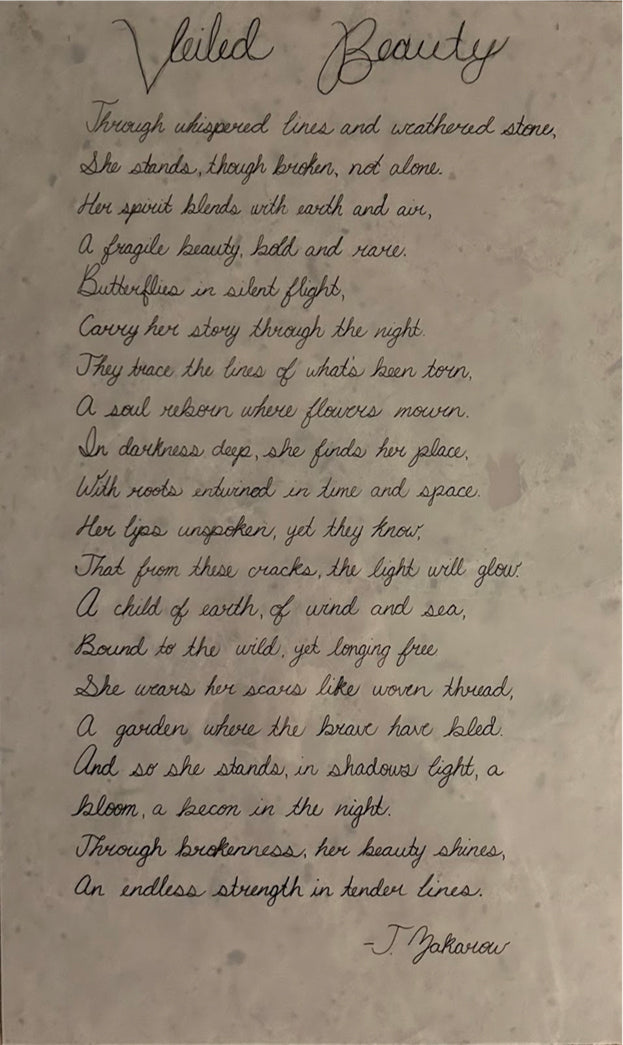 Veiled Beauty
Through whispered lines and weathered stone,
She stands, though broken, not alone.
Her spirit blends with earth and air,
A fragile beauty, bold and rare.
Butterflies in silent flight,
Carry her story through the night.
They trace the lines of what's been torn,
A soul reborn where flowers mourn.
In darkness deep, she finds her place,
With roots entwined in time and space.
Her lips unspoken, yet they know,
That from these cracks, the light will glow.
A child of earth, of wind and sea,
Bound to the wild, yet longing free
She wears her scars like woven thread,
A garden where the brave have bled.
And so she stands, in shadows light, a
bloom, a becon in the night.
Through brokenness, her beauty shines,
An endless strength in tender lines.
-J. Zakarow